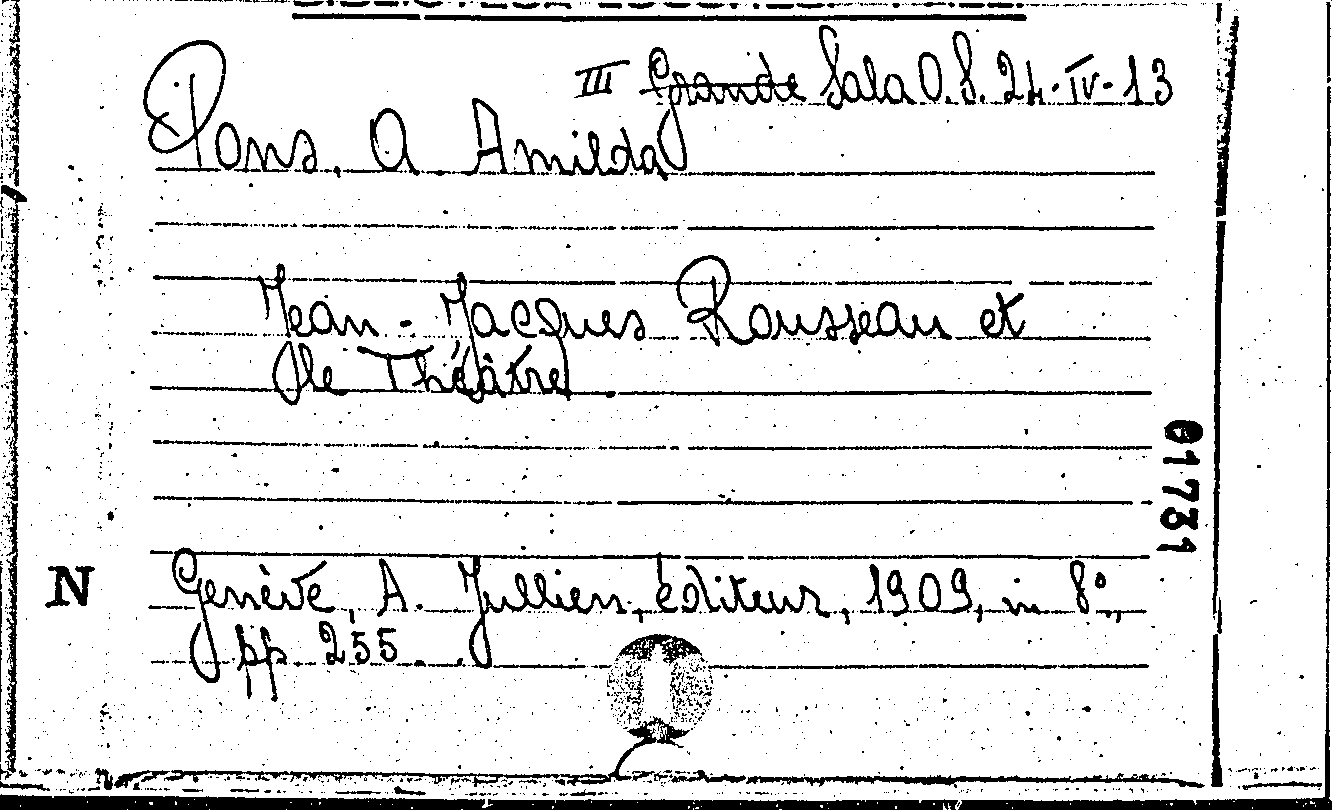 III Grande Sala O. S. 24-IV-13
Pons, A. Amilda
Jean-Jacques Rousseau et
le Théâtre.
01731
N
Genève, A. Jullien, éditeur, 1909, in 8°,
pp. 255.